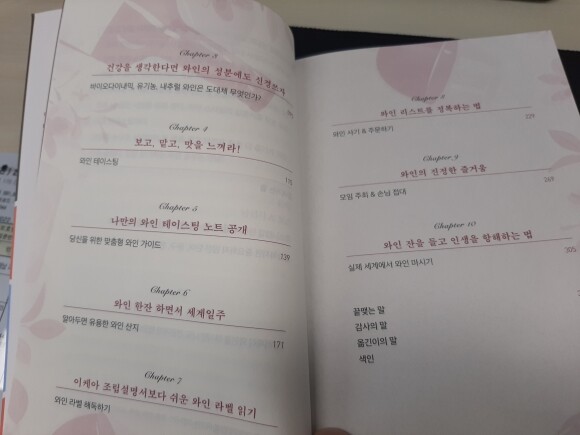 Chapter 3
건강을 생각한다면 와인의 성분에도 신경쓰자
바이오다이내믹, 유기농, 내추럴 와인은 도대체 무엇인가?
Chapter 4
보고, 맡고, 맛을 느껴라!
와인 테이스팅
Chapter 5
나만의 와인 테이스팅 노트 공개
당신을 위한 맞춤형 와인 가이드
139
Chapter 6
와인 한잔 하면서 세계일주
알아두면 유용한 와인 산지
171
Chapter 7
이케아 조립설명서보다 쉬운 와인 라벨 읽기
와인 라벨 해독하기
Chapter 8
와인 리스트를 정복하는 법
와인 사기 & 주문하기
Chapter 9
와인의 진정한 즐거움
모임 주최 & 손님 접대
Chapter 10
와인 잔을 들고 인생을 항해하는 법
실제 세계에서 와인 마시기
끝맺는 말
감사의 말
옮긴이의 말
색인